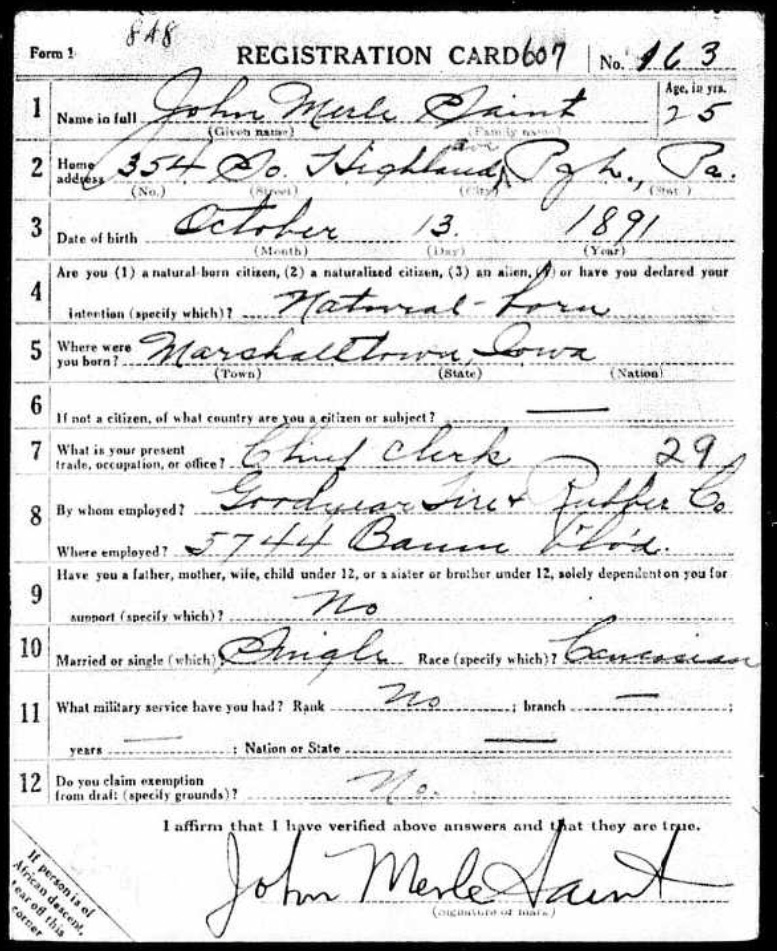 848
Form 1 REGISTRATION CARD 607 No. 163
1 Name in full John Merle Saint Age, in yrs. 25
(Given name) (Family name)
ave
2 Home address 354 So. Highland, Pgh., Pa.
(No.) (Street) (City) (State)
3 Date of birth October 13. 1891
(Month) (Day) (Year)
4 Are you (1) a natural-born citizen, (2) a naturalized citizen, (3) an alien, (4) or have you declared your
intention (specify which)? Natural-born
5 Where were you born? Marshalltown, Iowa
(Town) (State) (Nation)
6 If not a citizen, of what country are you a citizen or subject? —
7 What is your present trade, occupation, or office? Chief Clerk 29
8 By whom employed? Goodyear Tire & Rubber Co
Where employed? 5744 Baum Blv'd.
9 Have you a father, mother, wife, child under 12, or a sister or brother under 12, solely dependent on you for
support (specify which)? No
10 Married or single (which)? Single Race (specify which)? Caucasian
11 What military service have you had? Rank No ; branch — ;
years — ; Nation or State —
12 Do you claim exemption from draft (specify grounds)? No.
I affirm that I have verified above answers and that they are true.
John Merle Saint
(Signature or mark)
If person is of
African descent,
tear off this
corner